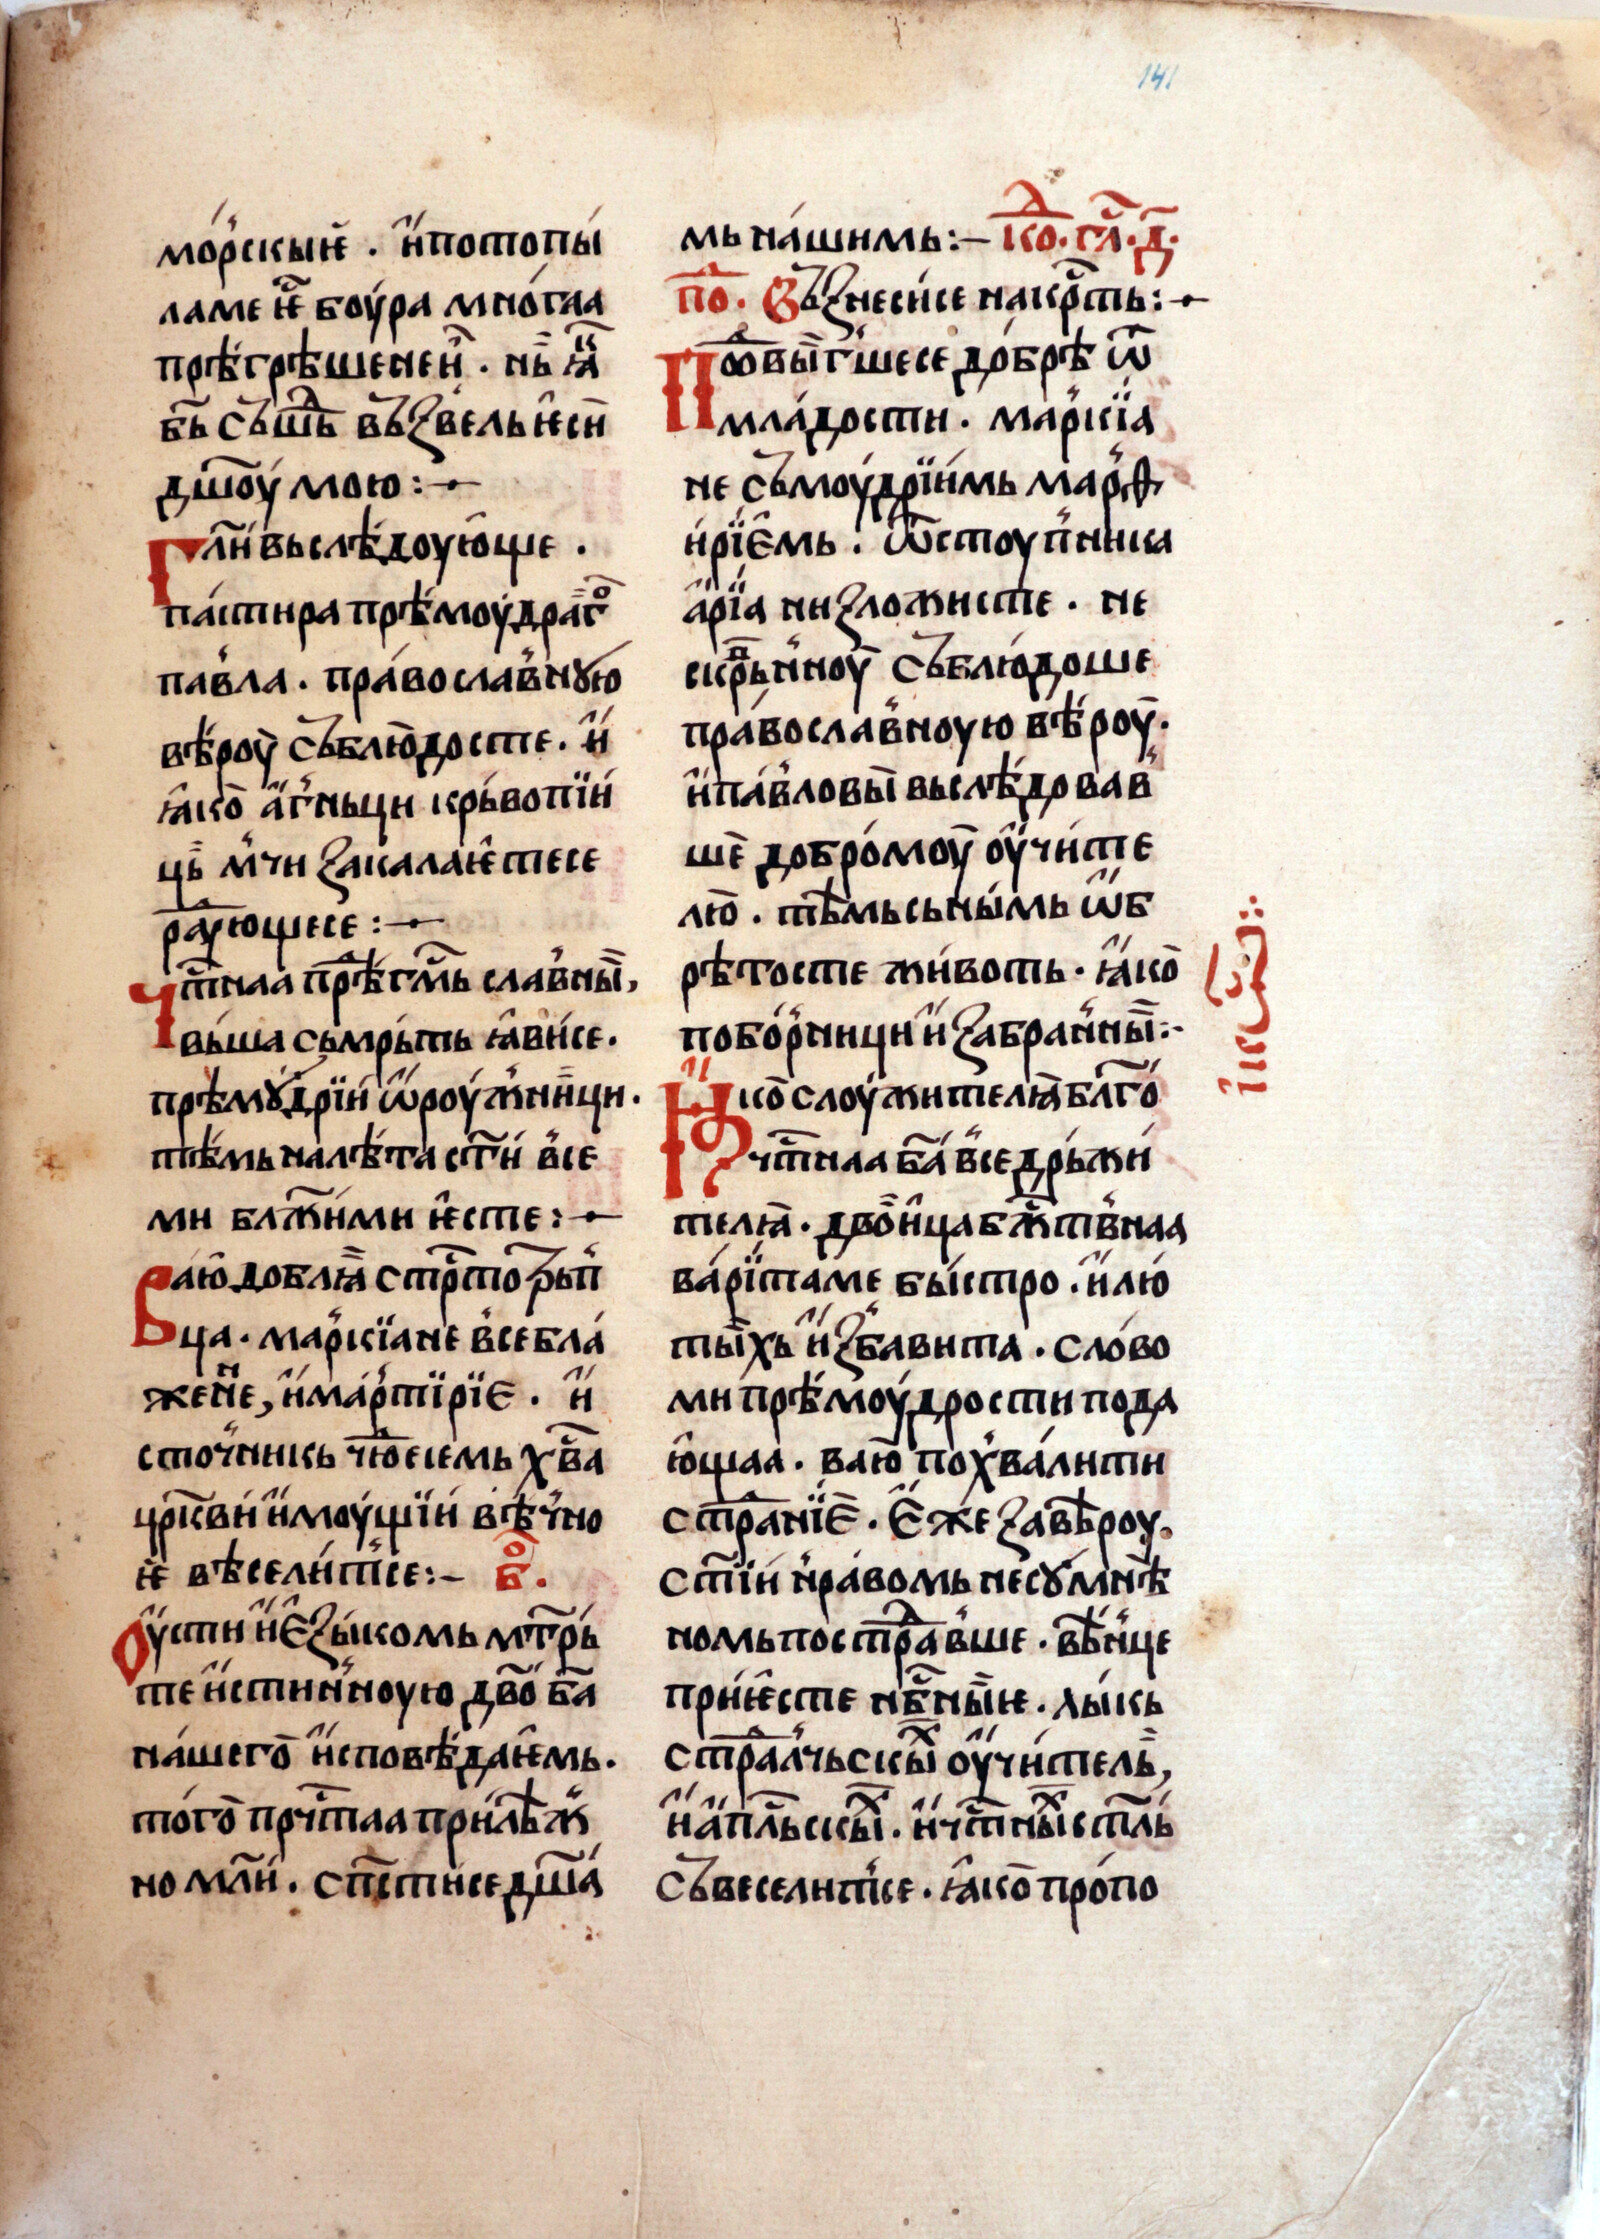 141
мо́рскыѥ . и҆ потопы́
ламе ѥ҆ боу́ра мно́гаа
прѣ́грѣшенеи҆ . нь̑ ꙗ҆
бь҃ съшь въꙁвель ѥ҆си̑
дш҃оу́ мою :—
Гл҃и вьслѣ́доую҆ще .
па́стира прѣ́моу́драг
па́вла . пра́вославнꙋю
вѣ́роу̑ съблю̑досте . и҆
ꙗ҆ко̑ а҆́гньци крь́вопїи́
ць̑ м҃чи ꙁакалаѥ҆тесе
раⷣую́щесе :—
Чт҃наа прѣ́ гм҃ь славны̑,
вы́ша съмрь́ть ꙗ҆ви́се .
прѣмꙋ́дрїи ѡ҆роу́жни́ци .
тѣ́мь на лѣ́та ст҃и́ все
ми блж҃и́ми ѥ҆сте :—
Ваю҆ доблꙗ̑ стрⷭ҇тотрьп
ца . маркїане всебла́
жене, и҆ ма́ртїрїе . и҆
сточникь чю̑есемь хв҃а
црк҃ви́ и҆моу́щїи вѣ́чно
ѥ̑ вѣсели́тесе :— б҃о .
Оу҆сти и҆ еꙁы́комь мт҃рь́
те и҆стинноую дв҃о́ б҃а
на́шего̑ и҆сповѣ́даѥ҆мь .
то́го̑ прчⷭ҇таа прилѣж
но мл҃и́ . сп҃стисе дш҃а́
мь на́шимь :— ко . гл҃ . д҃ .
по . Въꙁнеси́се на крⷭ҇ть :—
Подвы̑гшесе до́брѣ ѿ
мла́дости . маркїа
не съмоу́дрїи́мь мар
и́рїемь . ѿстоупника
а҆рїа ниꙁложисте . не
скрьпнноу̑ съблю́доше
пра́вославноую вѣ́роу̑ .
и҆ па́вловы̑ вьслѣ́довав
ше̑ добро́моу̑ оу҆чи́те
лю̑ . тѣмь съны́мь ѡ҆б
рѣтосте жи́воть . ꙗ҆ко̑
побо́рници и҆ ꙁабранны̑ :-
Ꙗ҆ко̑ слоу́жителꙗ̑ бл҃го́
чⷭ҇тнаа б҃а́ вседрь́жи
телꙗ̑ . дво̑и҆ца бжⷭ҇твнаа
ва́рїтаме бы́стро . и҆ лю́
ты̑хь и҆ꙁбавита . сло́во
ми прѣ́моу́дрости пода
ю҆щаа . ваю̑ похва́лити
странїе̑ . е҆же ꙁа вѣроу̑ .
ст҃їи нра́вомь несꙋмнѣ
номь постраⷣавше . вѣнце
при́ѥ҆сте нб҃ныѥ . лыкь
страⷣалчьскыⷯ оу҆чи́тель̑,
и҆ а҆пⷭ҇льскыⷯ . и҆ чⷭ҇тныⷯ ст҃ль
съвеселитесе . ꙗ҆ко̑ про́по